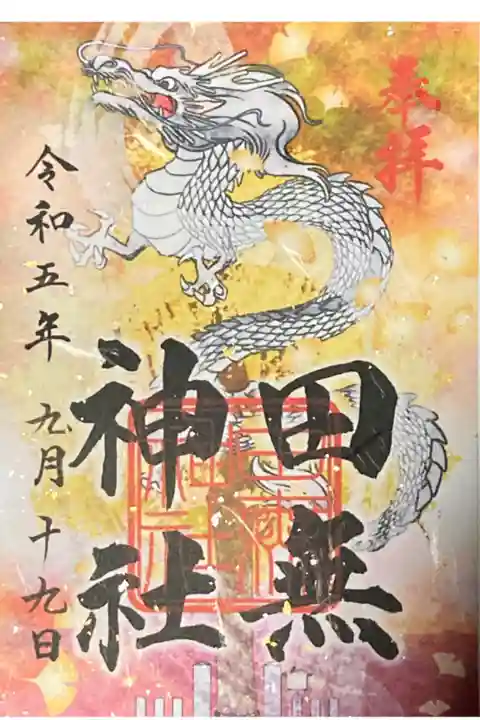 奉拝
田無
神社
令和五年 九月十九日